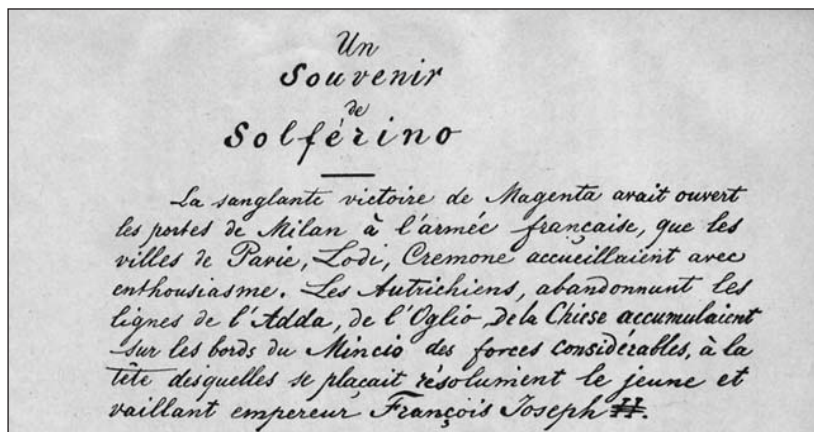 Un
Souvenir
de
Solférino
La sanglante victoire de Magenta avait ouvert
les portes de Milan à l'armée française, que les
villes de Pavie, Lodi, Cremone accueillaient avec
enthousiasme. Les Autrichiens, abandonnant les
lignes de l'Adda, de l'Oglio, de la Chiese accumulaient
sur les bords du Mincio des forces considérables, à la
tête desquelles se plaçait résolument le jeune et
vaillant empereur François Joseph